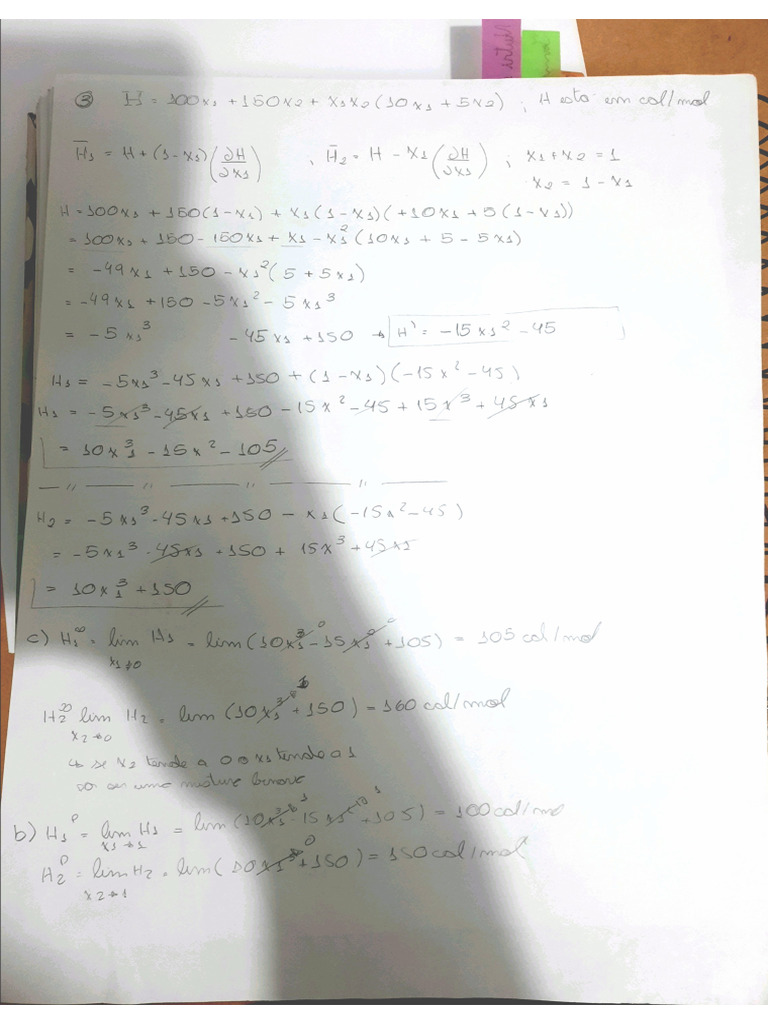 ③ H̄ = 100x₁ + 150x₂ + x₁x₂(10x₁ + 5x₂) ; H está em cal/mol
H̄₁ = H + (1 - x₁)(∂H/∂x₁) , H̄₂ = H - x₁(∂H/∂x₁) ; x₁ + x₂ = 1
x₂ = 1 - x₁
H = 100x₁ + 150(1 - x₁) + x₁(1 - x₁)(+10x₁ + 5(1 - x₁))
= 100x₁ + 150 - 150x₁ + x₁ - x₁²(10x₁ + 5 - 5x₁)
= -49x₁ + 150 - x₁²(5 + 5x₁)
= -49x₁ + 150 - 5x₁² - 5x₁³
= -5x₁³ - 45x₁ + 150 → H' = -15x₁² - 45
H₁ = -5x₁³ - 45x₁ + 150 + (1 - x₁)(-15x² - 45)
H₁ = -5x₁³ - 45x₁ + 150 - 15x² - 45 + 15x³ + 45x₁
= 10x₁³ - 15x² - 105
— // — // — // — // —
H₂ = -5x₁³ - 45x₁ + 150 - x₁(-15x² - 45)
= -5x₁³ - 45x₁ + 150 + 15x³ + 45x₁
= 10x₁³ + 150
c) H₁^∞ = lim H₁ = lim(10x₁³ - 15x₁² + 105) = 105 cal/mol
x₁→0
H₂^∞ lim H₂ = lim(10x₁³ + 150) = 160 cal/mol
x₂→0
↳ se x₂ tende a 0 o x₁ tende a 1
por ser uma mistura
b) H₁^P = lim H₁ = lim(10x₁³ - 15x₁² + 105) = 100 cal/mol
x₁→1
H₂^P = lim H₂ = lim(10x₁³ + 150) = 150 cal/mol
x₂→1